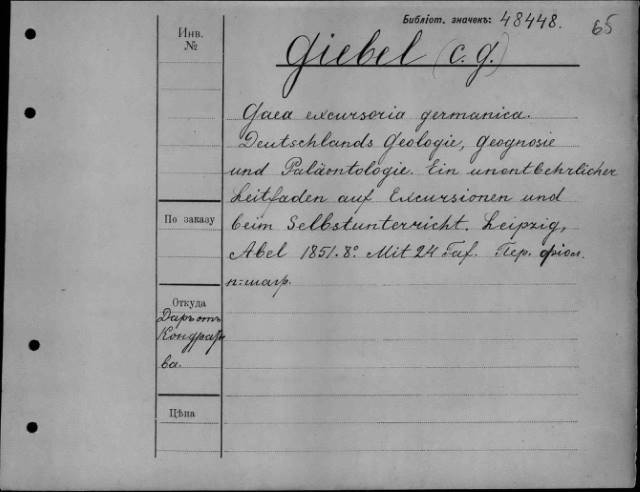 Библіот. значекъ: 48448. 65
Инв.
№
Giebel (C. G.)
Gaea excursoria germanica.
Deutschlands Geologie, Geognosie
und Paläontologie. Ein unontbehrlicher
Leitfaden auf Excursionen und
beim Selbstunterricht. Leipzig,
Abel 1851. 8º. Mit 24 Taf. Пер. фіол.
п:шагр.
По заказу
Откуда
Даръ отъ
Кондрать
ва.
Цѣна